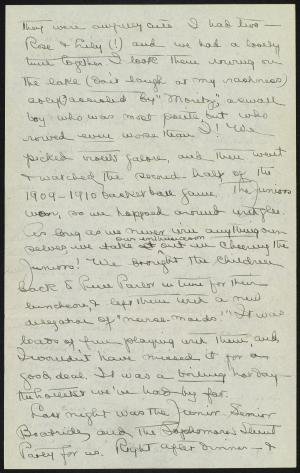 they were awfully cute I had two –
Rose & Lily (!) and we had a lovely
time together I took them rowing on
the lake (Don't laugh at my rashness)
accompanied by "Moritz", a small
boy who was most polite but who
rowed even worse than I! We
picked violets galore, and then went
& watched the second half of the
1909–1910 basket ball game. The Juniors
won, so we hopped around
As long as we never win anything our
selves, we take it out in cheering the
our enthusiasm
Juniors! We brought the children
back to Pine Parlor in time for their
luncheon, & left them with a new
delegation of "nurse-maids." It was
loads of fun playing with them, and
I wouldn't have missed it for a
good deal. It was a boiling hot day –
the hottest we've had by far.
Last night was the Junior-Senior
Boatride, and the Sophomores
Party for us. Right after dinner – &